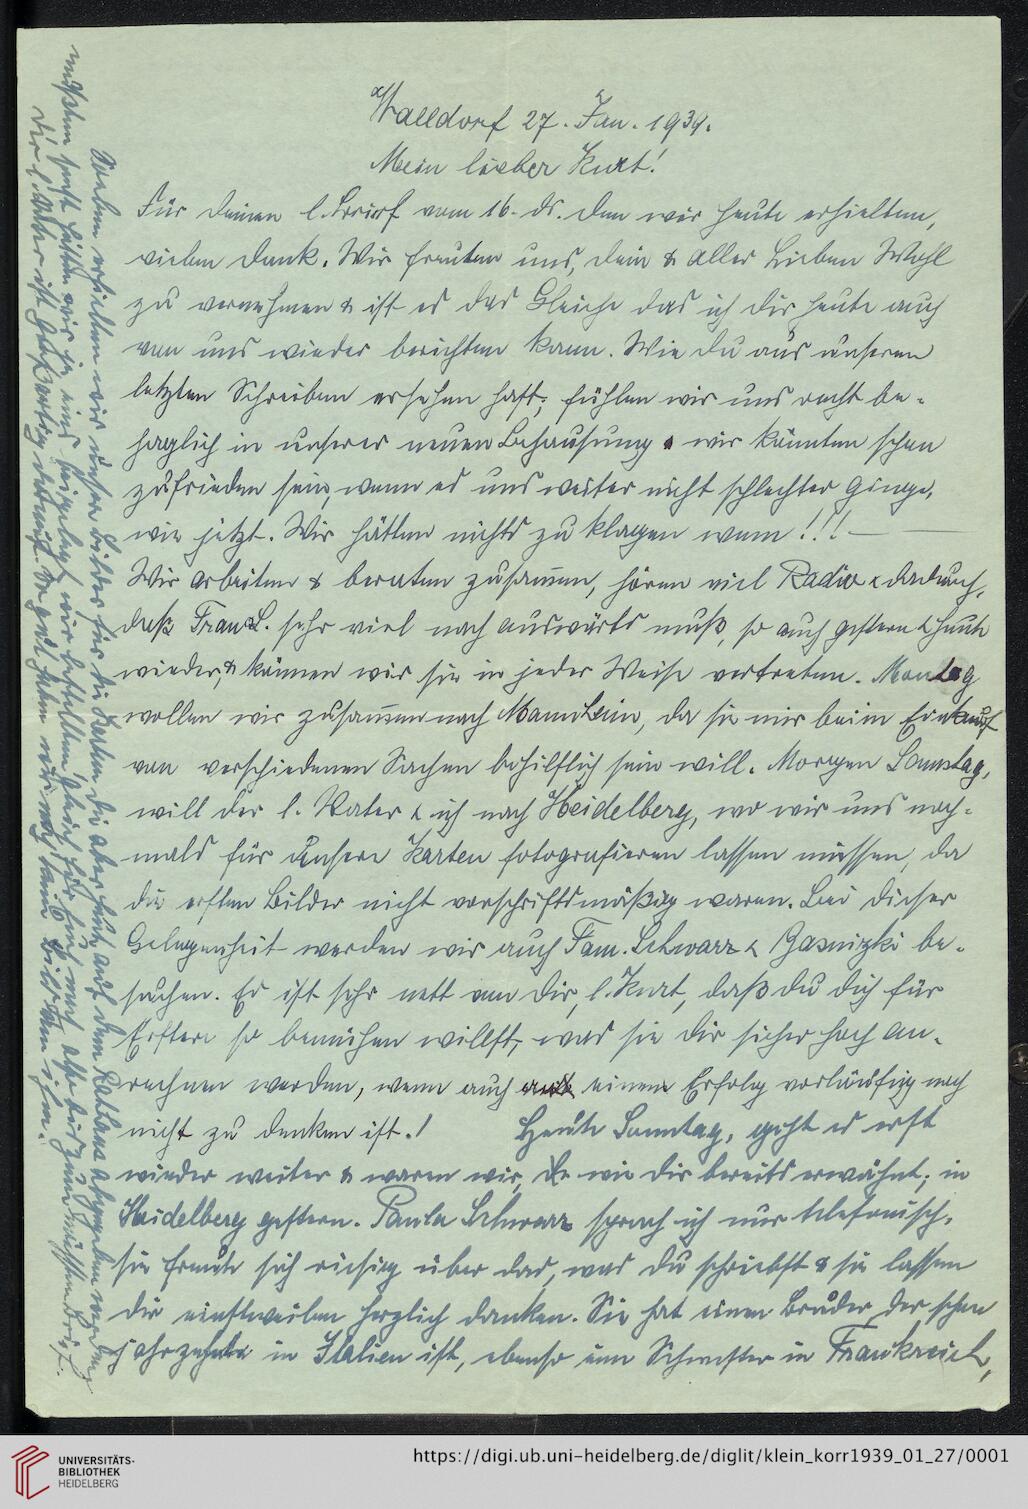 Walldorf 27. Jan. 1939.
Mein lieber Kurt!
Für deinen l. Brief vom 16. ds. den wir heute erhielten,
vielen Dank. Wir freuten uns, dein & aller Lieben Wohl
zu vernehmen & ist es das Gleiche das ich dir heute auch
von uns wieder berichten kann. Wie du aus unserem
letzten Schreiben ersehen hast, fühlen wir uns recht be-
haglich in unserer neuen Behausung & wir könnten schon
zufrieden sein, wenn es uns weiter nicht schlechter ginge,
wie jetzt. Wir hätten nichts zu klagen wenn !!! —
Wir arbeiten & beraten zusammen, hören viel Radio & dadurch,
daß Frau L. sehr viel nach auswärts muß, so auch gestern & heute
wieder, & können wir sie in jeder Weise vertreten. Montag
wollen wir zusammen nach Mannheim, da sie mir beim Einkauf
von verschiedenen Sachen behilflich sein will. Morgen Samstag,
will der l. Vater & ich nach Heidelberg, wo wir uns noch-
mals für unsere Karten fotografieren lassen müssen, da
die ersten Bilder nicht vorschriftsmäßig waren. Bei dieser
Gelegenheit werden wir auch Fam. Schwarz & Basnizki be-
suchen. Es ist sehr nett von Dir, l. Kurt, daß du dich für
Erstere so bemühen willst, was sie dir sicher hoch an-
rechnen werden, wenn auch einem Erfolg vorläufig noch
nicht zu denken ist.! Heute Sonntag, geht es erst
wieder weiter & waren wir, wie dir bereits erwähnt, in
Heidelberg gestern. Paula Schwarz sprach ich nur telefonisch,
sie freute sich riesig über das, was du schriebst & sie lassen
dir einstweilen herzlich danken. Sie hat einen Bruder der schon
jahrzehnte in Italien ist, ebenso eine Schwester in Frankreich,
Soeben erhielten wir unsere Bilder für die Karten die aber heute auf dem Rathaus abgegeben werden
mußten sonst hätten wir ja eins beigelegt, wir bestellten gleich für Euch nach
Der l. Vater ist
UNIVERSITÄTS-
BIBLIOTHEK
HEIDELBERG
https://digi.ub.uni-heidelberg.de/diglit/klein_korr1939_01_27/0001